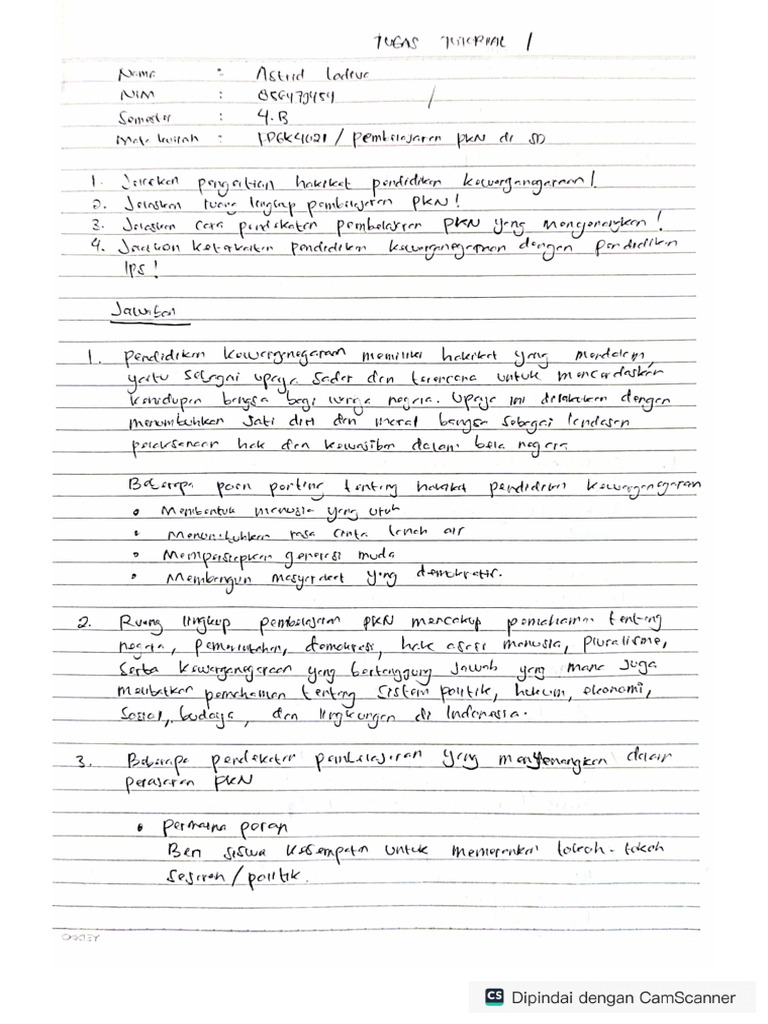 TUGAS TUTORIAL 1
Nama : Astrid
NIM : 856479454
Semester : 4.B
Mata kuliah : PDGK4021 / pembelajaran PKN di SD
1. Jelaskan pengertian hakikat pendidikan kewarganegaraan!
2. Jelaskan ruang lingkup pembelajaran PKN!
3. Jelaskan cara pendekatan pembelajaran PKN yang menyenangkan!
4. Jelaskan keterkaitan pendidikan kewarganegaraan dengan pendidikan
IPS!
Jawaban
1. Pendidikan kewarganegaraan memiliki hakikat yang mendalam,
yaitu sebagai upaya sadar dan terencana untuk mencerdaskan
kehidupan bangsa bagi warga negara. Upaya ini dilakukan dengan
menumbuhkan jati diri dan moral bangsa sebagai landasan
pelaksanaan hak dan kewajiban dalam bela negara
Beberapa poin penting tentang hakikat pendidikan kewarganegaraan
• Membentuk manusia yang utuh
• Menumbuhkan rasa cinta tanah air
• Mempersiapkan generasi muda
• Membangun masyarakat yang demokratis.
2. Ruang lingkup pembelajaran PKN mencakup pemahaman tentang
negara, pemerintahan, demokrasi, hak asasi manusia, pluralisme,
serta kewarganegaraan yang bertanggung jawab yang mana juga
melibatkan pemahaman tentang sistem politik, hukum, ekonomi,
sosial, budaya, dan lingkungan di Indonesia.
3. Beberapa pendekatan pembelajaran yang menyenangkan dalam
pelajaran PKN
• Permainan peran
Beri siswa kesempatan untuk memerankan tokoh-tokoh
sejarah/politik.
CS Dipindai dengan CamScanner